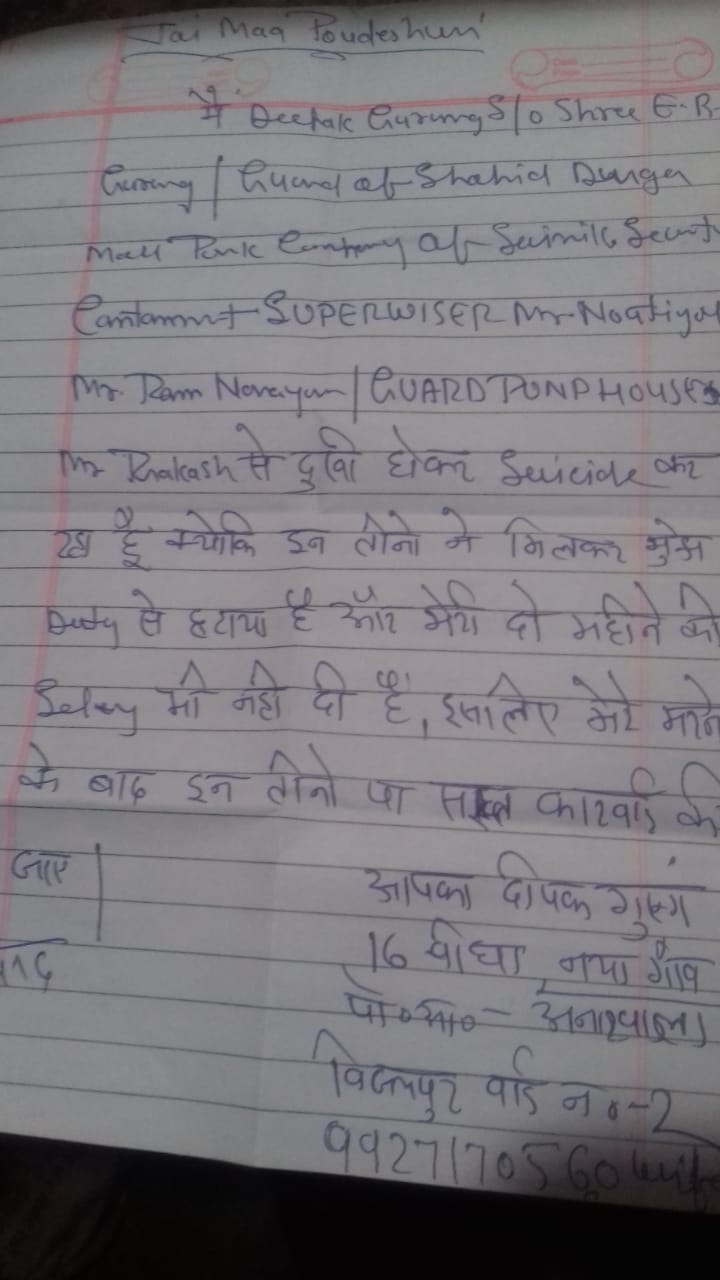 Jai Maa
मैं Deepak Gurung S/o Shree G.B
Gurung / Guard of Shahid Durga
Mall Park Company of Sainik Securit
SUPERWISER Mr. Noatiyal
Mr. Ram Narayan / GUARD PUNP HOUSE
Mr Prakash से दुखि होकर Suicide कर
रहा हूँ क्योकि इन तीनो ने मिलकर मुझे
Duty से हटाया है और मेरी दो महीने की
Selary भी नही दी है, इसलिए मेरे मरने
के बाद इन तीनो पर सख्त कारवाई की
जाए |
आपका दीपक गुरुंग
16 बीघा, नया गाँव
पो०आ० -
विजयपुर वार्ड न०-2
9927170560 wife